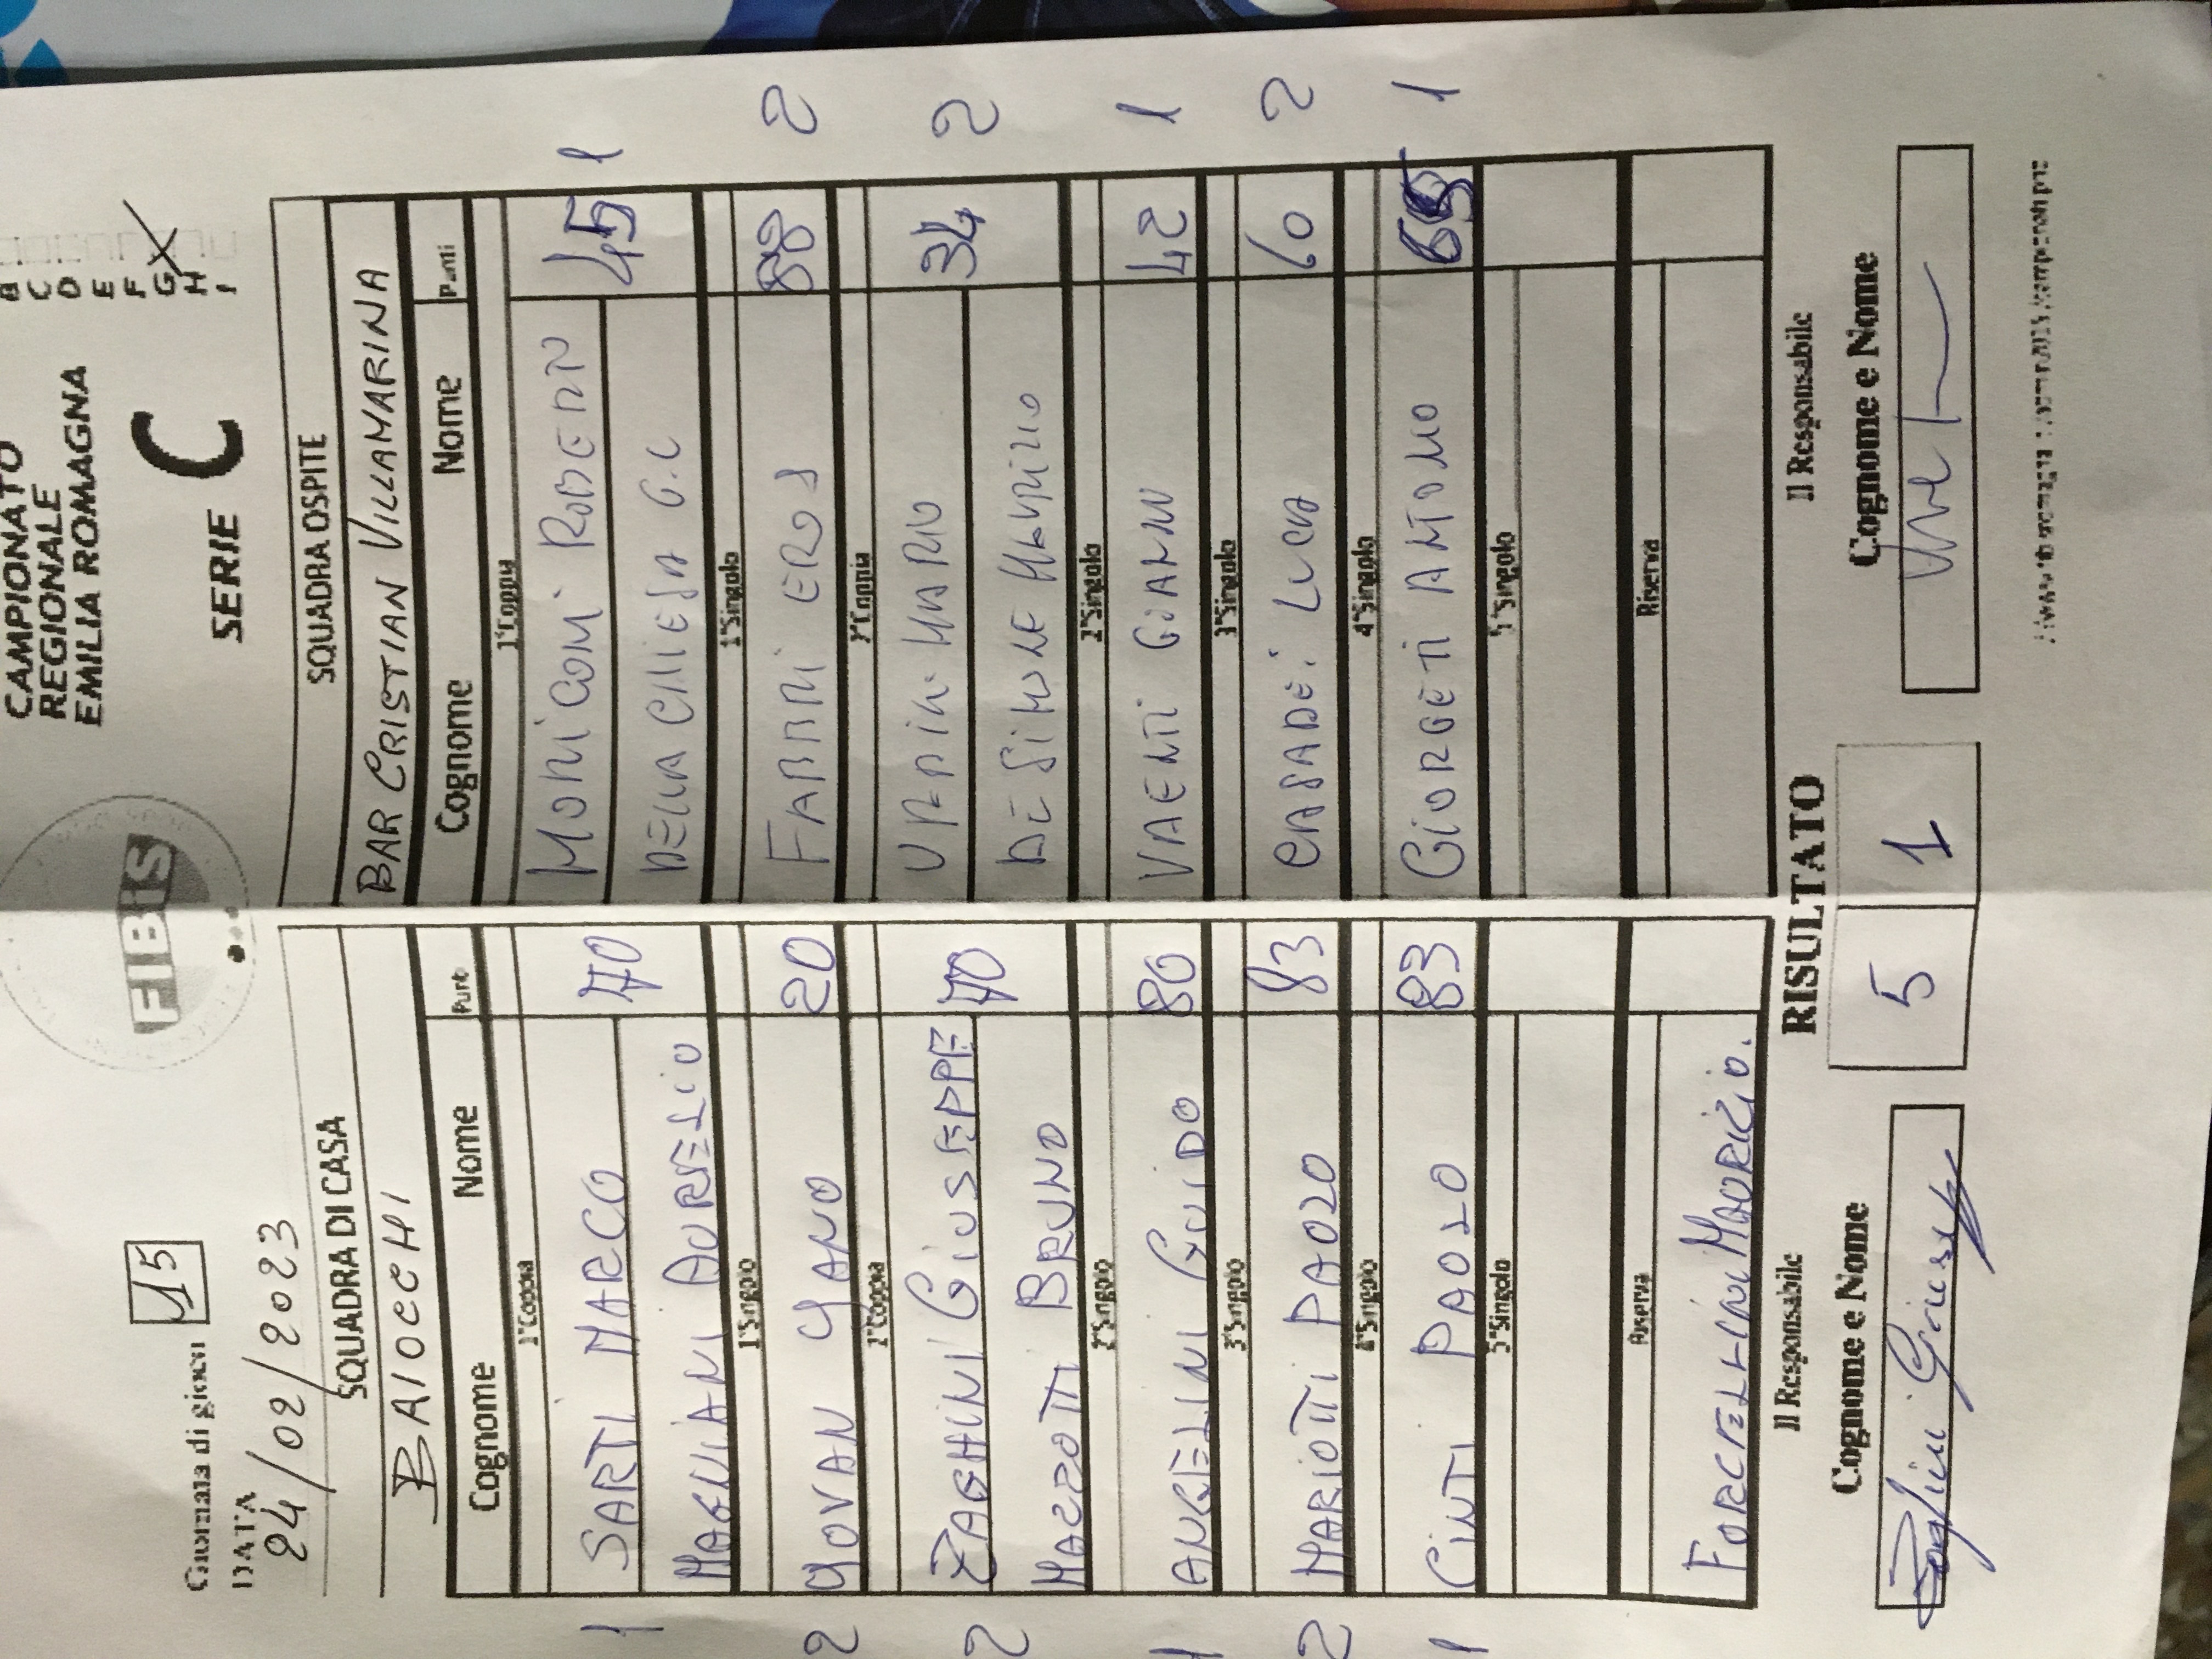 CAMPIONATO
REGIONALE
EMILIA ROMAGNA
SERIE C
B
C
D
E
F
G
H
I
FIBIS
Giornata di gioco 15
DATA
24/02/2023
SQUADRA DI CASA
BAIOCCHI
Cognome Nome Punti
1°Coppia
1 SARTI MARCO 70
MAGNANI AURELIO
1°Singolo
2 YOVAN YANO 20
2°Coppia
2 ZAGHINI GIUSEPPE 70
MAZZOTTI BRUNO
2°Singolo
1 ANGELINI GUIDO 80
3°Singolo
2 MARIOTTI PAOLO 83
4°Singolo
1 CINTI PAOLO 83
5°Singolo
Riserva
FORCELLINI MAURIZIO.
Il Responsabile
Cognome e Nome
SQUADRA OSPITE
BAR CRISTIAN VILLAMARINA
Cognome Nome Punti
1°Coppia
MORICONI ROBERTO 45 1
DELLA CHIESA G.C
1°Singolo
FABBRI EROS 88 2
2°Coppia
MARIO 34 2
DE SIMONE MAURIZIO
2°Singolo
VAENTI GIANNI 42 1
3°Singolo
CASADEI LUCA 60 2
4°Singolo
GIORGETTI ANTONIO 65 1
5°Singolo
Riserva
Il Responsabile
Cognome e Nome
RISULTATO
5 1